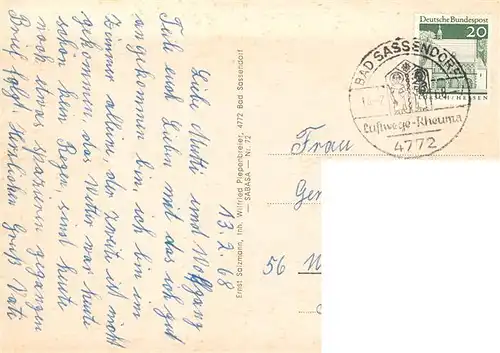 13.2.68
Liebe Mutti und Wolfgang
Teile euch Lieben mit das ich gut
angekommen bin, ich bin im
Zimmer alleine, der Zweite ist nicht
gekommen, das Wetter war heute
schön kein Regen, sind heute
noch etwas spazieren gegangen
Brief folgt Herzlichen Gruß Vati
Ernst Salzmann, Inh. Wilfried Piepenbreier, 4772 Bad Sassendorf
— SABASA — Nr. 72
Deutsche Bundespost
20
LORSCH/HESSEN
BAD SASSENDORF
Luftwege-Rheuma
4772
Frau
56